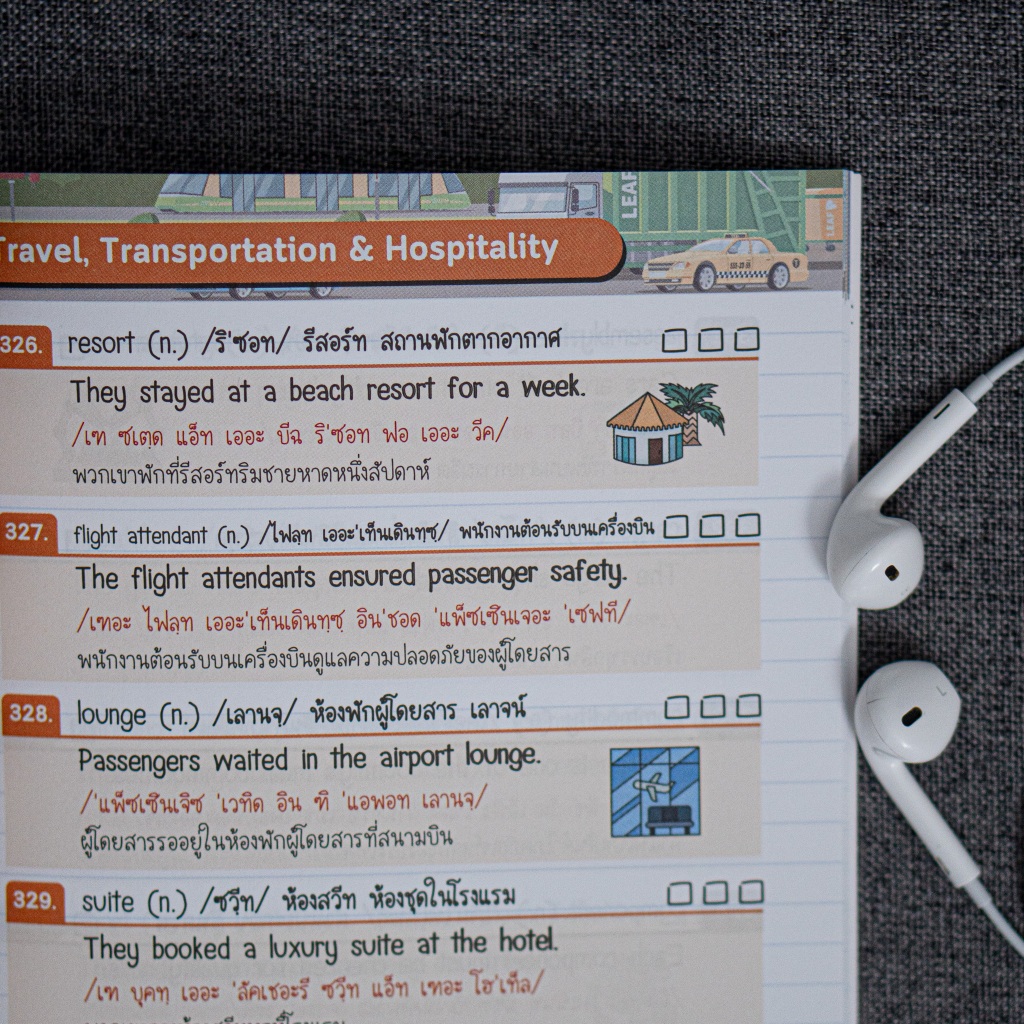 LEAF
LEAF
Travel, Transportation & Hospitality
326. resort (n.) /ริ'ซอท/ รีสอร์ท สถานพักตากอากาศ
They stayed at a beach resort for a week.
/เฑ ซเตฺด แอ็ท เออะ บีฉ ริ'ซอท ฟอ เออะ วีค/
พวกเขาพักที่รีสอร์ทริมชายหาดหนึ่งสัปดาห์
327. flight attendant (n.) /ไฟลฺท เออะ'เท็นเดินทฺซฺ/ พนักงานต้อนรับบนเครื่องบิน
The flight attendants ensured passenger safety.
/เฑอะ ไฟลฺท เออะ'เท็นเดินทฺซฺ อิน'ชอด 'แพ็ซเซินเจอะ 'เซฟที/
พนักงานต้อนรับบนเครื่องบินดูแลความปลอดภัยของผู้โดยสาร
328. lounge (n.) /เลานจฺ/ ห้องพักผู้โดยสาร เลาจน์
Passengers waited in the airport lounge.
/'แพ็ซเซินเจิซ 'เวทิด อิน ฑิ 'แอพอท เลานจฺ/
ผู้โดยสารรออยู่ในห้องพักผู้โดยสารที่สนามบิน
329. suite (n.) /ซวีท/ ห้องสวีท ห้องชุดในโรงแรม
They booked a luxury suite at the hotel.
/เฑ บุคทฺ เออะ 'ลัคเชอะรี ซวีท แอ็ท เฑอะ โฮ'เท็ล/